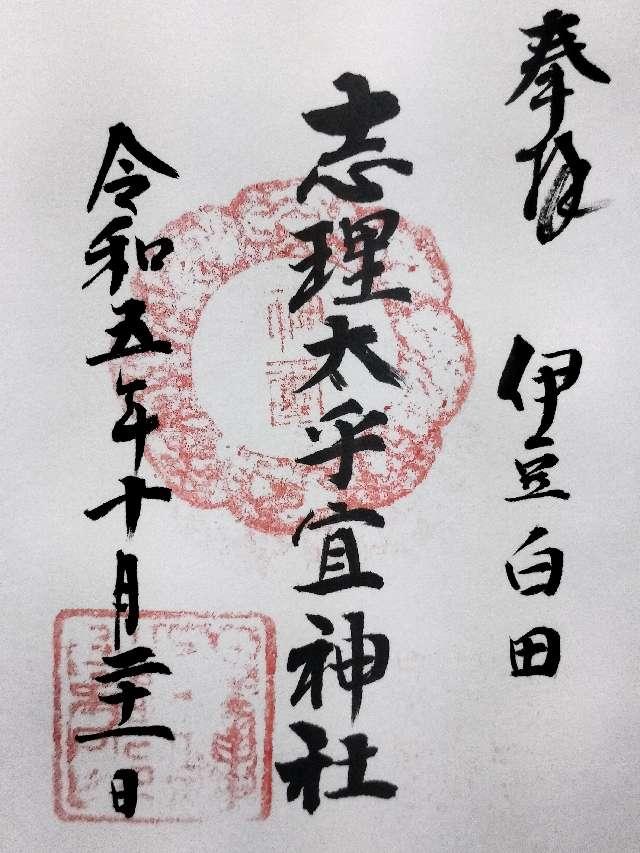 奉拝
伊豆白田
志理太乎宜神社
令和五年十月二十一日